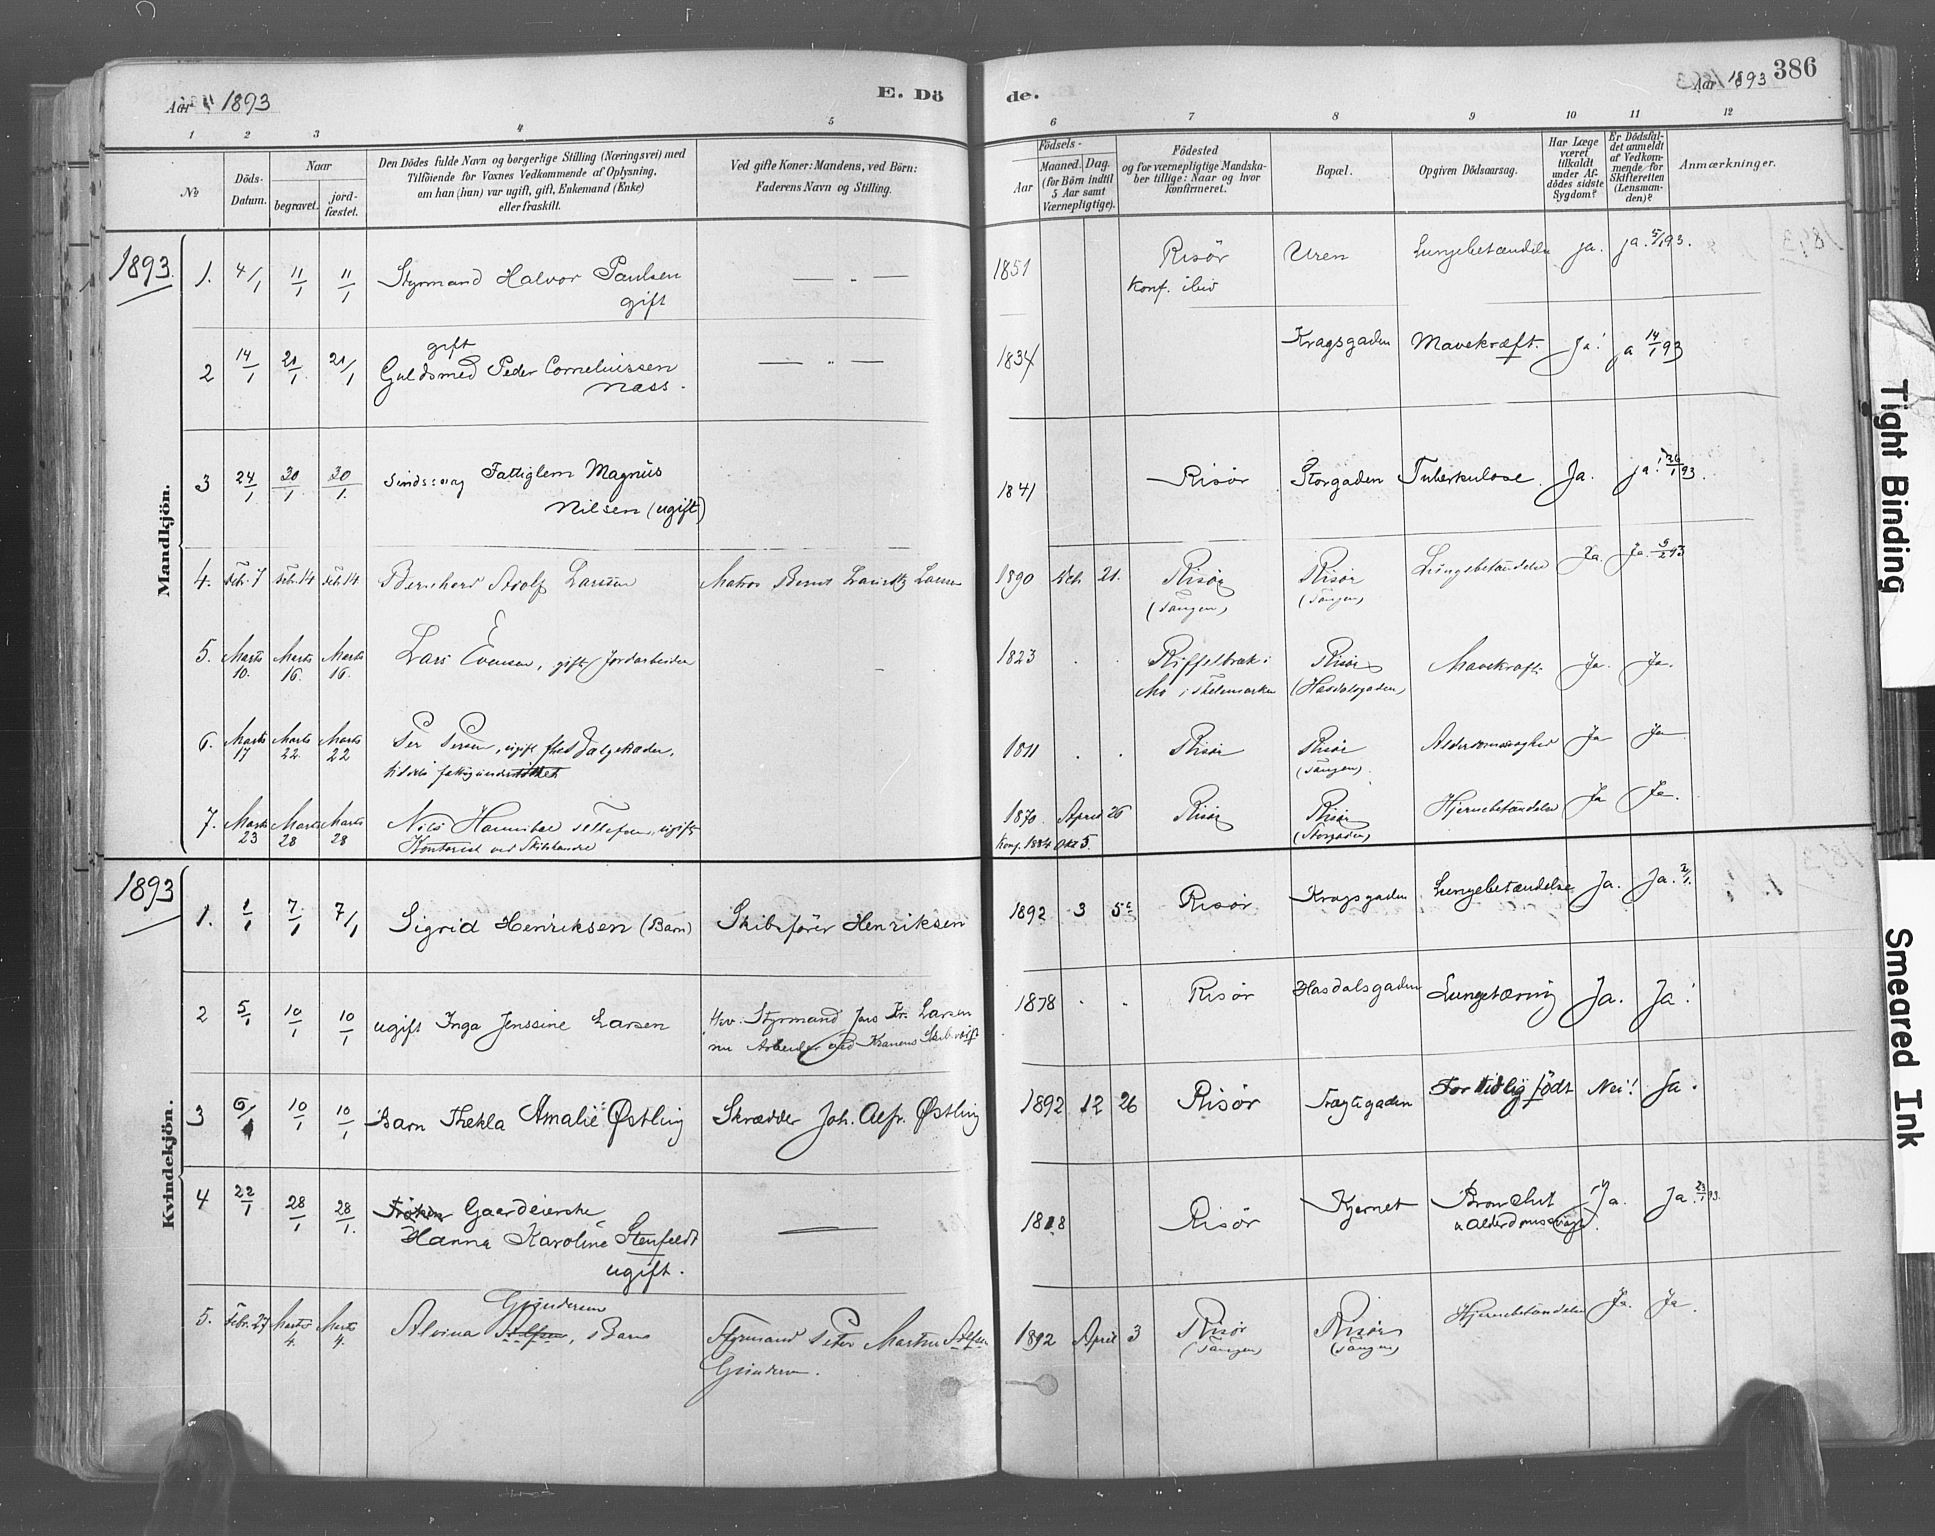 Aar 1893
E. Dö
de.
Aar 1893
386
1 2 3 4 5 6 7 8 9 10 11 12
No
Döds-
Datum.
Naar
begravet.
jord-
fæstet.
Den Dödes fulde Navn og borgerlige Stilling (Næringsvei) med
Tilföiende for Voxnes Vedkommende af Oplysning,
om han (hun) var ugift, gift, Enkemand (Enke)
eller fraskilt.
Ved gifte Koner: Mandens, ved Börn:
Faderens Navn og Stilling.
Födsels-
Aar
Maaned. Dag.
(for Börn indtil
5 Aar samt
Værnepligtige).
Födested
og for værnepligtige Mandska-
ber tillige: Naar og hvor
konfirmeret.
Bopæl.
Opgiven Dödsaarsag.
Har Læge
været
tilkaldt
under Af-
dödes sidste
Sygdom?
Er Dödsfal-
det anmeldt
af Vedkom-
mende for
Skifteretten
(Lensman-
den)?
Anmærkninger.
Mandkjön.
1893
1. 4/1 11/1 11/1 Styrmand Halvor Paulsen — " — 1851 Risör Uren Lungebetændelse ja. ja. 5/1 93.
gift Konf. ibid
gift
2 14/1 21/1 21/1 Guldsmed Peder Corneliussen — " — 1834 Kragsgaden Mavekræft. Ja! ja 14/1 93
Næss.
3 24/1 30/1 30/1 Sindssvag Fattiglem Magnus 1841 Risör Storgaden Tuberkulose. Ja. ja! 26/1 93.
Nilsen (ugift)
4. Febr. 7 Febr. 14 Febr. 14 Bernhard Adolf Larsen Matros Bernt Lauritz Larsen 1890 21. Risör Risör Lungebetændelse Ja. Ja. 93
(Tangen) (Tangen)
5. Marts 10. Marts 16. Marts 16. Lars Evensen, gift Jordarbeider 1823 . . Risör Mavekræft Ja. Ja.
Mo i Thelemarken (Hasdalsgaden)
6. Marts 17 Marts 22. Marts 22 Per Persen, ugift 1811 . . Risör Risör Alderdomssvaghed Ja Ja
(Tangen).
7. Marts 23 Marts 28 Marts 28 Nils Hannibal Tellefsen, ugift 1870. April 26 Risör Risör Hjernebetændelse Ja Ja.
Kontorist ved Skibshandel Konf. 1884 Okt 5. (Storgaden)
Kvindekjön.
1893
1. 1/1 7/1 7/1 Sigrid Henriksen (Barn) Skibsförer Henriksen 1892 3 5 Risör Kragsgaden Lungebetændelse Ja. Ja. 2/1.
2 5/1 10/1 10/1 ugift Inga Jenssine Larsen Styrmand Larsen 1878 . . Risör Hasdalsgaden Lungetæring Ja. Ja!
nu Arbeider ved
3 6/1 10/1 10/1 Barn Thekla Amalie Østling Skrædder Joh. Alfr. Østling 1892 12 26 Risör For tidlig födt Nei! Ja.
4 22/1 28/1 28/1. Fröken Gaardeierske — 1818 Risör Kjernet Bronchit Ja. Ja. 93.
Hanna Karoline Stenfeldt
ugift.
5. Febr. 27 Marts 4. Marts 4. Alvina Alfsen, Barn Styrmand Peter Martin Alfsen 1892 April 3 Risör Risör Hjernebetændelse Ja. Ja.
(Tangen) (Tangen)
Tight Binding
Smeared Ink